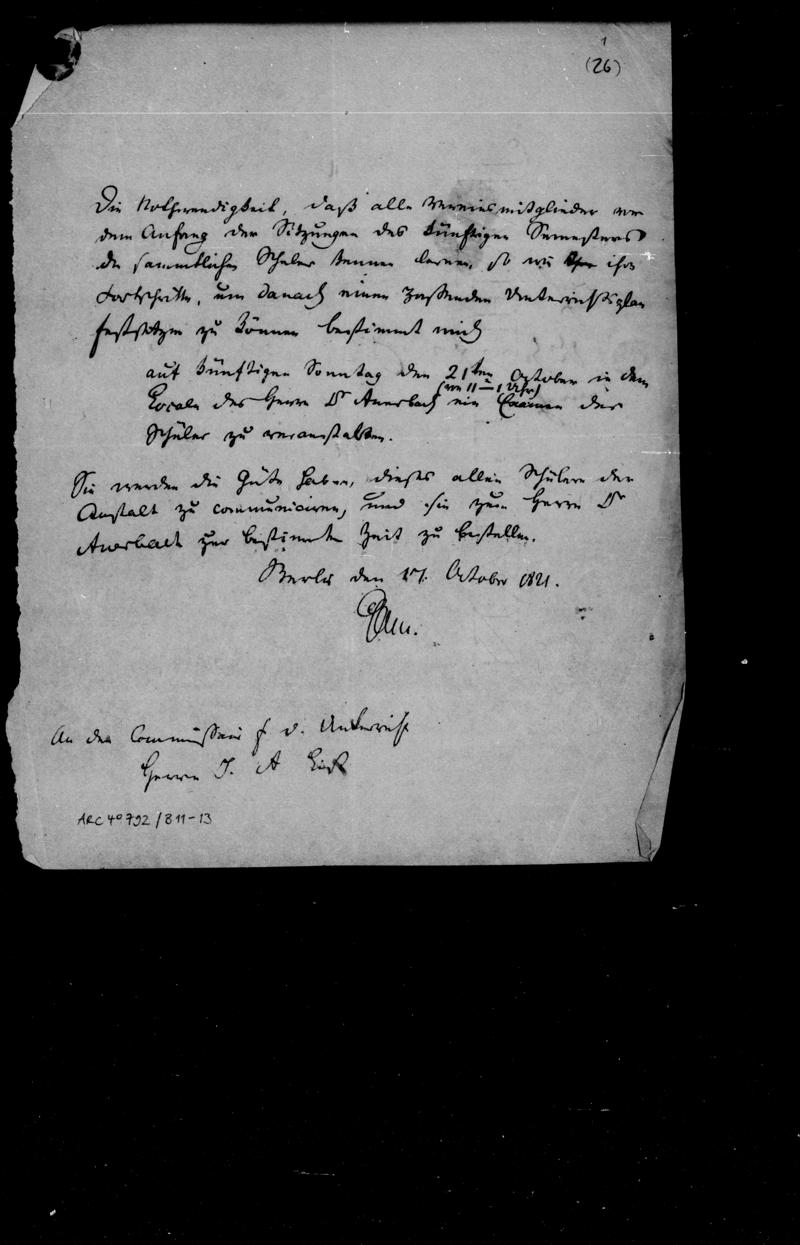 1
(26)
Die Nothwendigkeit, daß alle Vereinsmitglieder vor
dem Anfang der Sitzungen des künftigen Semesters
die sämmtlichen Schüler kennen lernen, so wie ihre
Fortschritte, um danach einen passenden Unterrichtsplan
festsetzen zu können bestimmt mich
auf künftigen Sonntag den 21ten October in dem
(von 11–1 Uhr)
Locale des Herrn Dr Auerbach ein Examen der
Schüler zu veranstalten.
Sie werden die Güte haben, dieses allen Schülern der
Anstalt zu communiciren, und sie zum Herrn Dr
Auerbach zur bestimmten Zeit zu bestellen.
Berlin den 17. October 1821.
Gans.
An den Commissair f. d. Unterricht
Herrn J. A
ARC 4° 792 / B 11-13